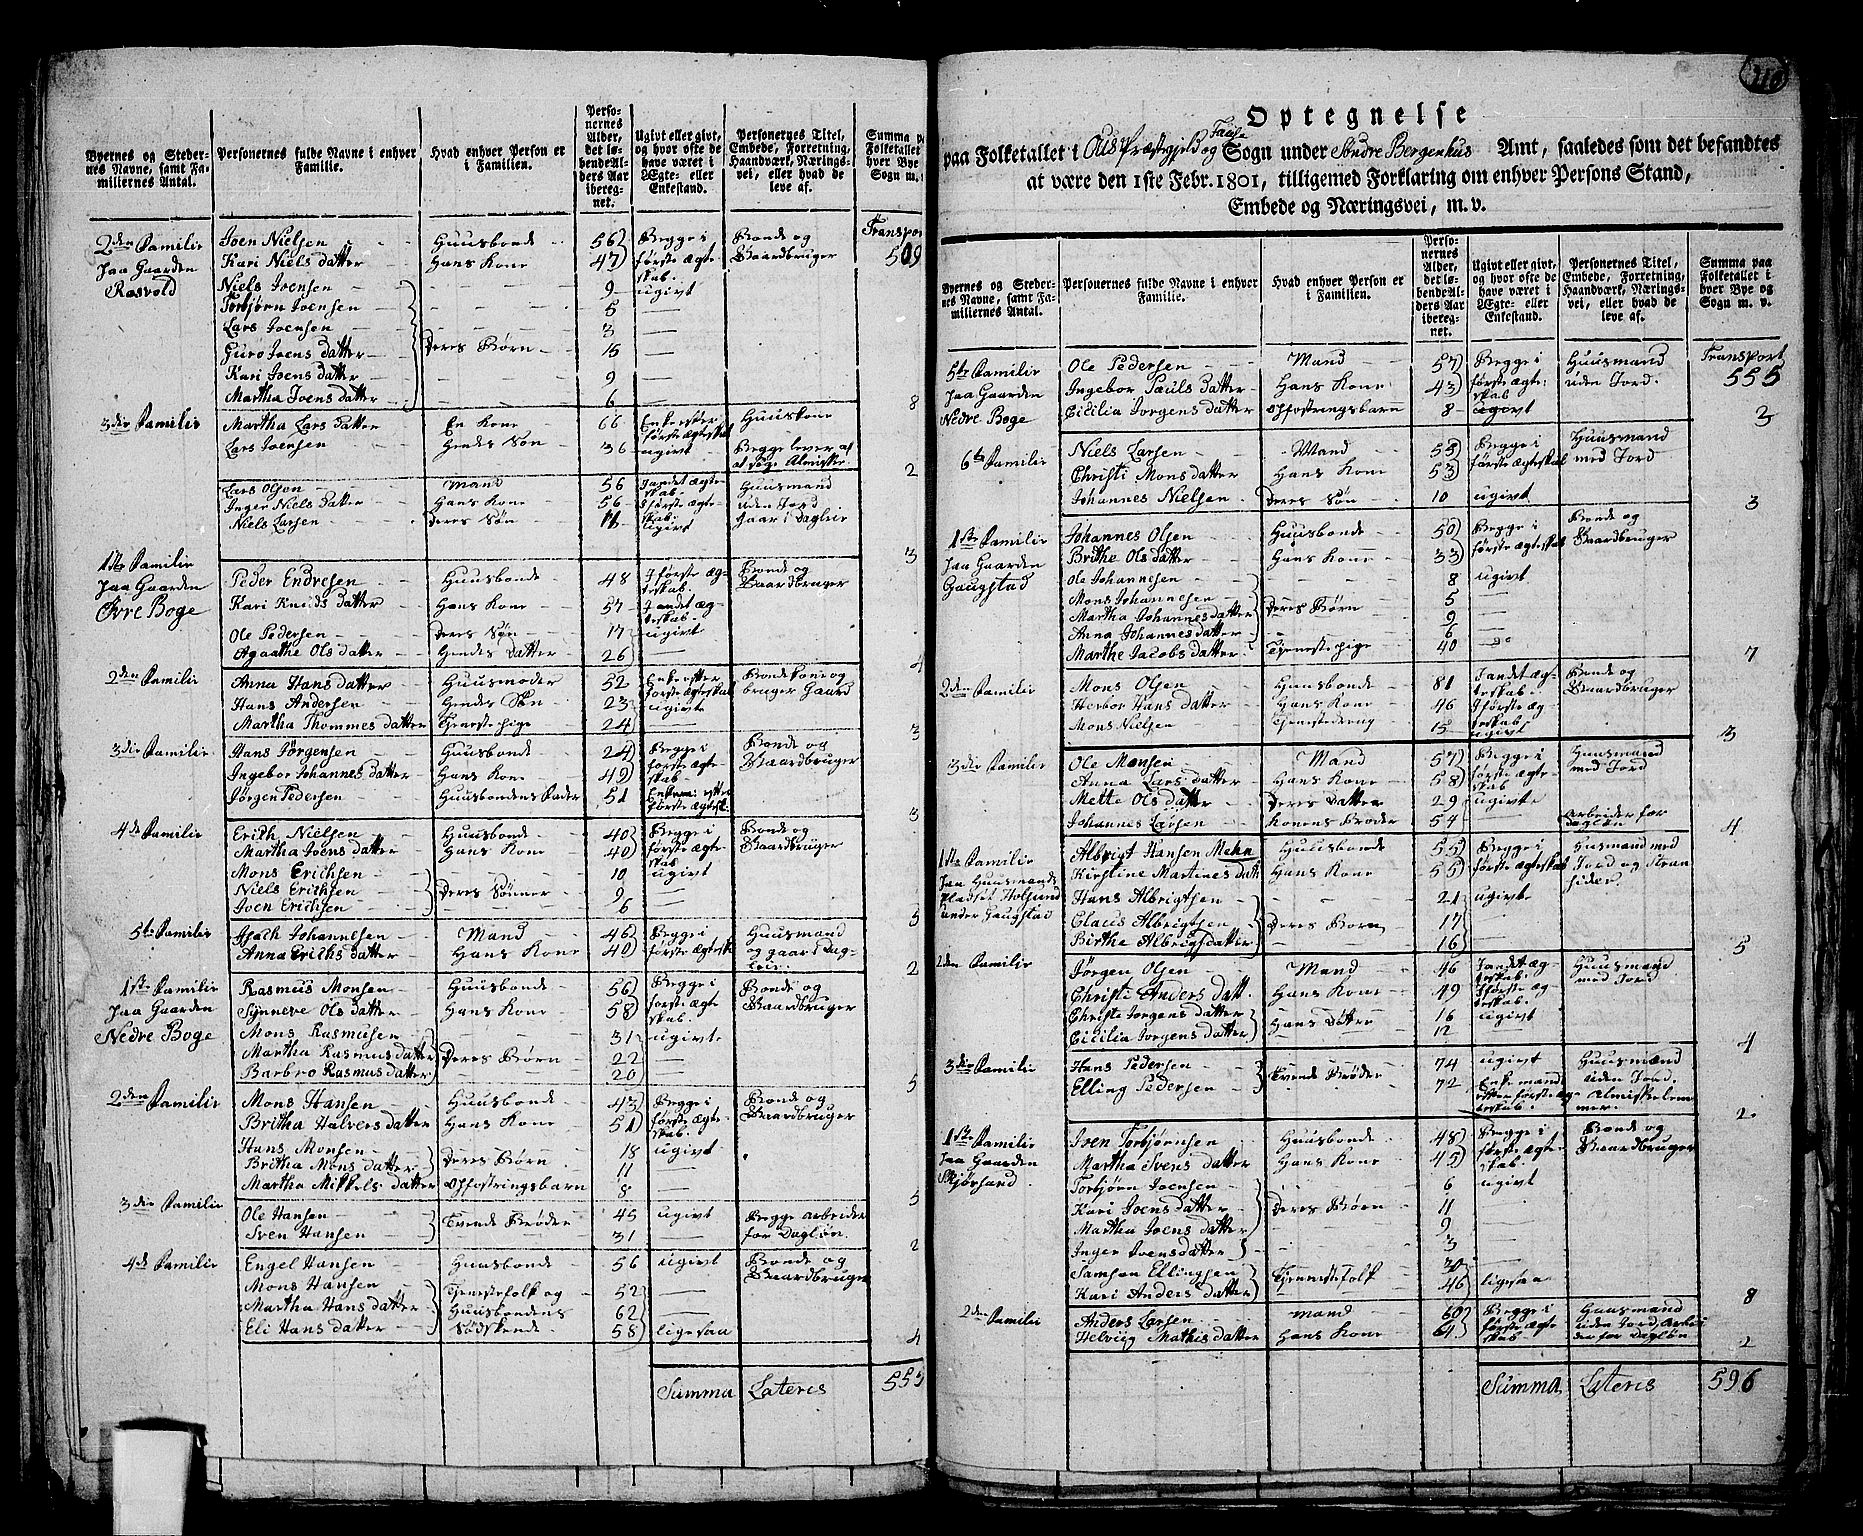 Byernes og Steder-
nes Navne, samt Fa-
miliernes Antal.
Personernes fulde Navne i enhver
Familie.
Hvad enhver Person er
i Familien.
Perso-
nernes
Alder,
det lø-
bende Al-
ders Aar
ibereg-
net.
Ugivt eller givt,
og hvor ofte de
have været i
Ægte- eller
Enkestand.
Personernes Titel,
Embede, Forretning,
Haandværk, Nærings-
vei, eller hvad de
leve af.
Summa p
Folketallet
hver Bye
Sogn m.
Transpor
509
2den Familie Joen Nielsen Huusbonde 56 Begge i Bonde og
paa Gaarden Kari Niels datter Hans Kone 47 første Ægte- Gaardbruger
Rasvold Niels Joensen 9 ugivt
Torbjørn Joensen 5
Lars Joensen 3
Guro Joens datter Deres Børn 15
Kari Joens datter 9
Martha Joens datter 6 8
3die Familie Martha Lars datter En Kone 66 Enke efter Huuskone
Lars Joensen Hendes Søn 36 ugivt Begge lever af 2
Lars Olsen Mand 56 Huusmand
Inger Niels datter Hans Kone 56 uden Jord
Niels Larsen Deres Søn ugivt 3
1ste Familie Peder Endresen Huusbonde 48 I første Æg- Bonde og
paa Gaarden teskab Gaardbruger
Øvre Boge Kari Knuds datter Hans Kone 57 I andet Æg-
Ole Pedersen Deres Søn 17 ugivt
Agaathe Ols datter Hendes Datter 26 4
2den Familie Anna Hans datter Huusmoder 52 Enke efter Bondekone og
Hans Andersen Hendes Søn 23 ugivt bruger Gaard
Martha Thommes datter Tjenestepige 24 3
3die Familie Hans Jørgensen Huusbonde 24 Begge i Bonde og
Ingebor Johannes datter Hans Kone 49 første Ægte- Gaardbruger
Jørgen Pedersen Huusbondens Fader 51 3
4de Familie Erich Nielsen Huusbonde 40 Begge i Bonde og
Martha Joens datter Hans Kone 40 første Ægte- Gaardbruger
Mons Erichsen 10 ugivt
Niels Erichsen Deres Sønner 9
Joen Erichsen 6 5
5te Familie Isach Johannesen Mand 46 Begge i Huusmand
Anna Erichs datter Hans Kone 40 og gaar i Dag-
leie. 2
1ste Familie Rasmus Monsen Huusbonde 56 Begge i Bonde og
paa Gaarden Synneve Ols datter Hans Kone 58 første Ægte Gaardbruger
Nedre Boge Mons Rasmusen 31 ugivt
Martha Rasmus datter Deres Børn 22
Barbro Rasmus datter 20 5
2den Familie Mons Hansen Huusbonde 43 Begge i Bonde og
Britha Halvers datter Hans Kone 51 første Ægte- Gaardbruger
Hans Monsen 18 ugivt
Britha Mons datter Deres Børn 11
Martha Mikkels datter Opfostringsbarn 8 5
3die Familie Ole Hansen 45 ugivt Begge arbeider
Sven Hansen Tvende Brødre 31 for Dagløn 2
4de Familie Engel Hansen Huusbonde 56 ugivt Bonde og
Mons Hansen Tjenestefolk og 52 Gaardbruger
Martha Hans datter Huusbondens 62
Eli Hans datter Sødskende 58 ligesaa 4
Summa Lateris 555
Optegnelse
paa Folketallet i Ous Præstegjeld og Fane Sogn under Søndre Bergenhus Amt, saaledes som det befandtes
at være den 1ste Febr. 1801, tilligemed Forklaring om enhver Persons Stand,
Embede og Næringsvei, m. v.
Byernes og Steder-
nes Navne, samt Fa-
miliernes Antal.
Personernes fulde Navne i enhver
Familie.
Hvad enhver Person er
i Familien.
Perso-
nernes
Alder,
det lø-
bende Al-
ders Aar
ibereg-
net.
Ugivt eller givt,
og hvor ofte de
have været i
Ægte- eller
Enkestand.
Personernes Titel,
Embede, Forretning,
Haandværk, Nærings-
vei, eller hvad de
leve af.
Summa paa
Folketallet i
hver Bye og
Sogn m. v.
Transport
555
5te Familie Ole Pedersen Mand 57 Begge i Huusmand
paa Gaarden Ingebor Pauls datter Hans Kone 43 første Ægte- uden Jord.
Nedre Boge Cicilia Jørgens datter Opfostringsbarn 8 ugivt 3
6te Familie Niels Larsen Mand 53 Begge i Huusmand
Christi Mons datter Hans Kone 53 første Ægteskab med Jord
Johannes Nielsen Deres Søn 10 ugivt 3
1ste Familie Johannes Olsen Huusbonde 50 Begge i Bonde og
paa Gaarden Brithe Ols datter Hans Kone 33 første Ægteskab Gaardbruger
Gaugstad Ole Johannesen 8 ugivt
Mons Johannesen 5
Martha Johannes datter Deres Børn 9
Anna Johannes datter 6
Marthe Jacobs datter Tjenestepige 40 do 7
2den Familie Mons Olsen Huusbonde 81 I andet Æg- Bonde og
Herbor Hans datter Hans Kone 46 I første Æg- Gaardbruger
Mons Nielsen Tjenestedreng 15 ugivt 3
3die Familie Ole Monsen Mand 57 Begge i Huusmand
Anna Lars datter Hans Kone 58 første Ægte- med Jord
Mette Ols datter Deres Datter 29 ugivte
Johannes Larsen Konens Broder 54 Arbeider for
Dagløn 4
1ste Familie Albrigt Hansen Mehn Huusbonde 55 Begge i Husmand med
paa Huusmands Kirstine Martines datt Hans Kone 55 første Ægteskab Jord og Stran
pladset Holsund Hans Albrigtsen 21 ugivte sider.
under Gaugstad Claus Albrigtsen Deres Børn 17
Birthe Albrigts datter 16 5
2den Familie Jørgen Olsen Mand 46 I andet Æg- Huusmand
Christi Anders datt. Hans Kone 49 I første Æg- med Jord
Christi Jørgens datter 16 ugivt
Cicilia Jørgens datter Hans Døttre 12 4
3die Familie Hans Pedersen 74 ugivt Huusmænd
Elling Pedersen Tvende Brødre 72 Enkemand uden Jord.
efter første Æg- Almisselem
teskab. mer. 2
1ste Familie Joen Torbjørnsen Huusbonde 48 Begge i Bonde og
paa Gaarden Martha Svens datter Hans Kone 45 første Ægte- Gaardbruger
Skjørsand Torbjørn Joensen 6 ugivt
Kari Joens datter Deres Børn 11
Martha Joens datter 9
Inger Joens datter 3
Samson Ellingsen Tjenestefolk 30
Kari Anders datter 46 ligesaa 8
2den Familie Anders Larsen Mand 60 Begge i Huusmand
Helvig Mathis datter Hans Kone 64 første Ægte uden Jord, Arbei
skab der for Dagløn 2
Summa Lateris 596